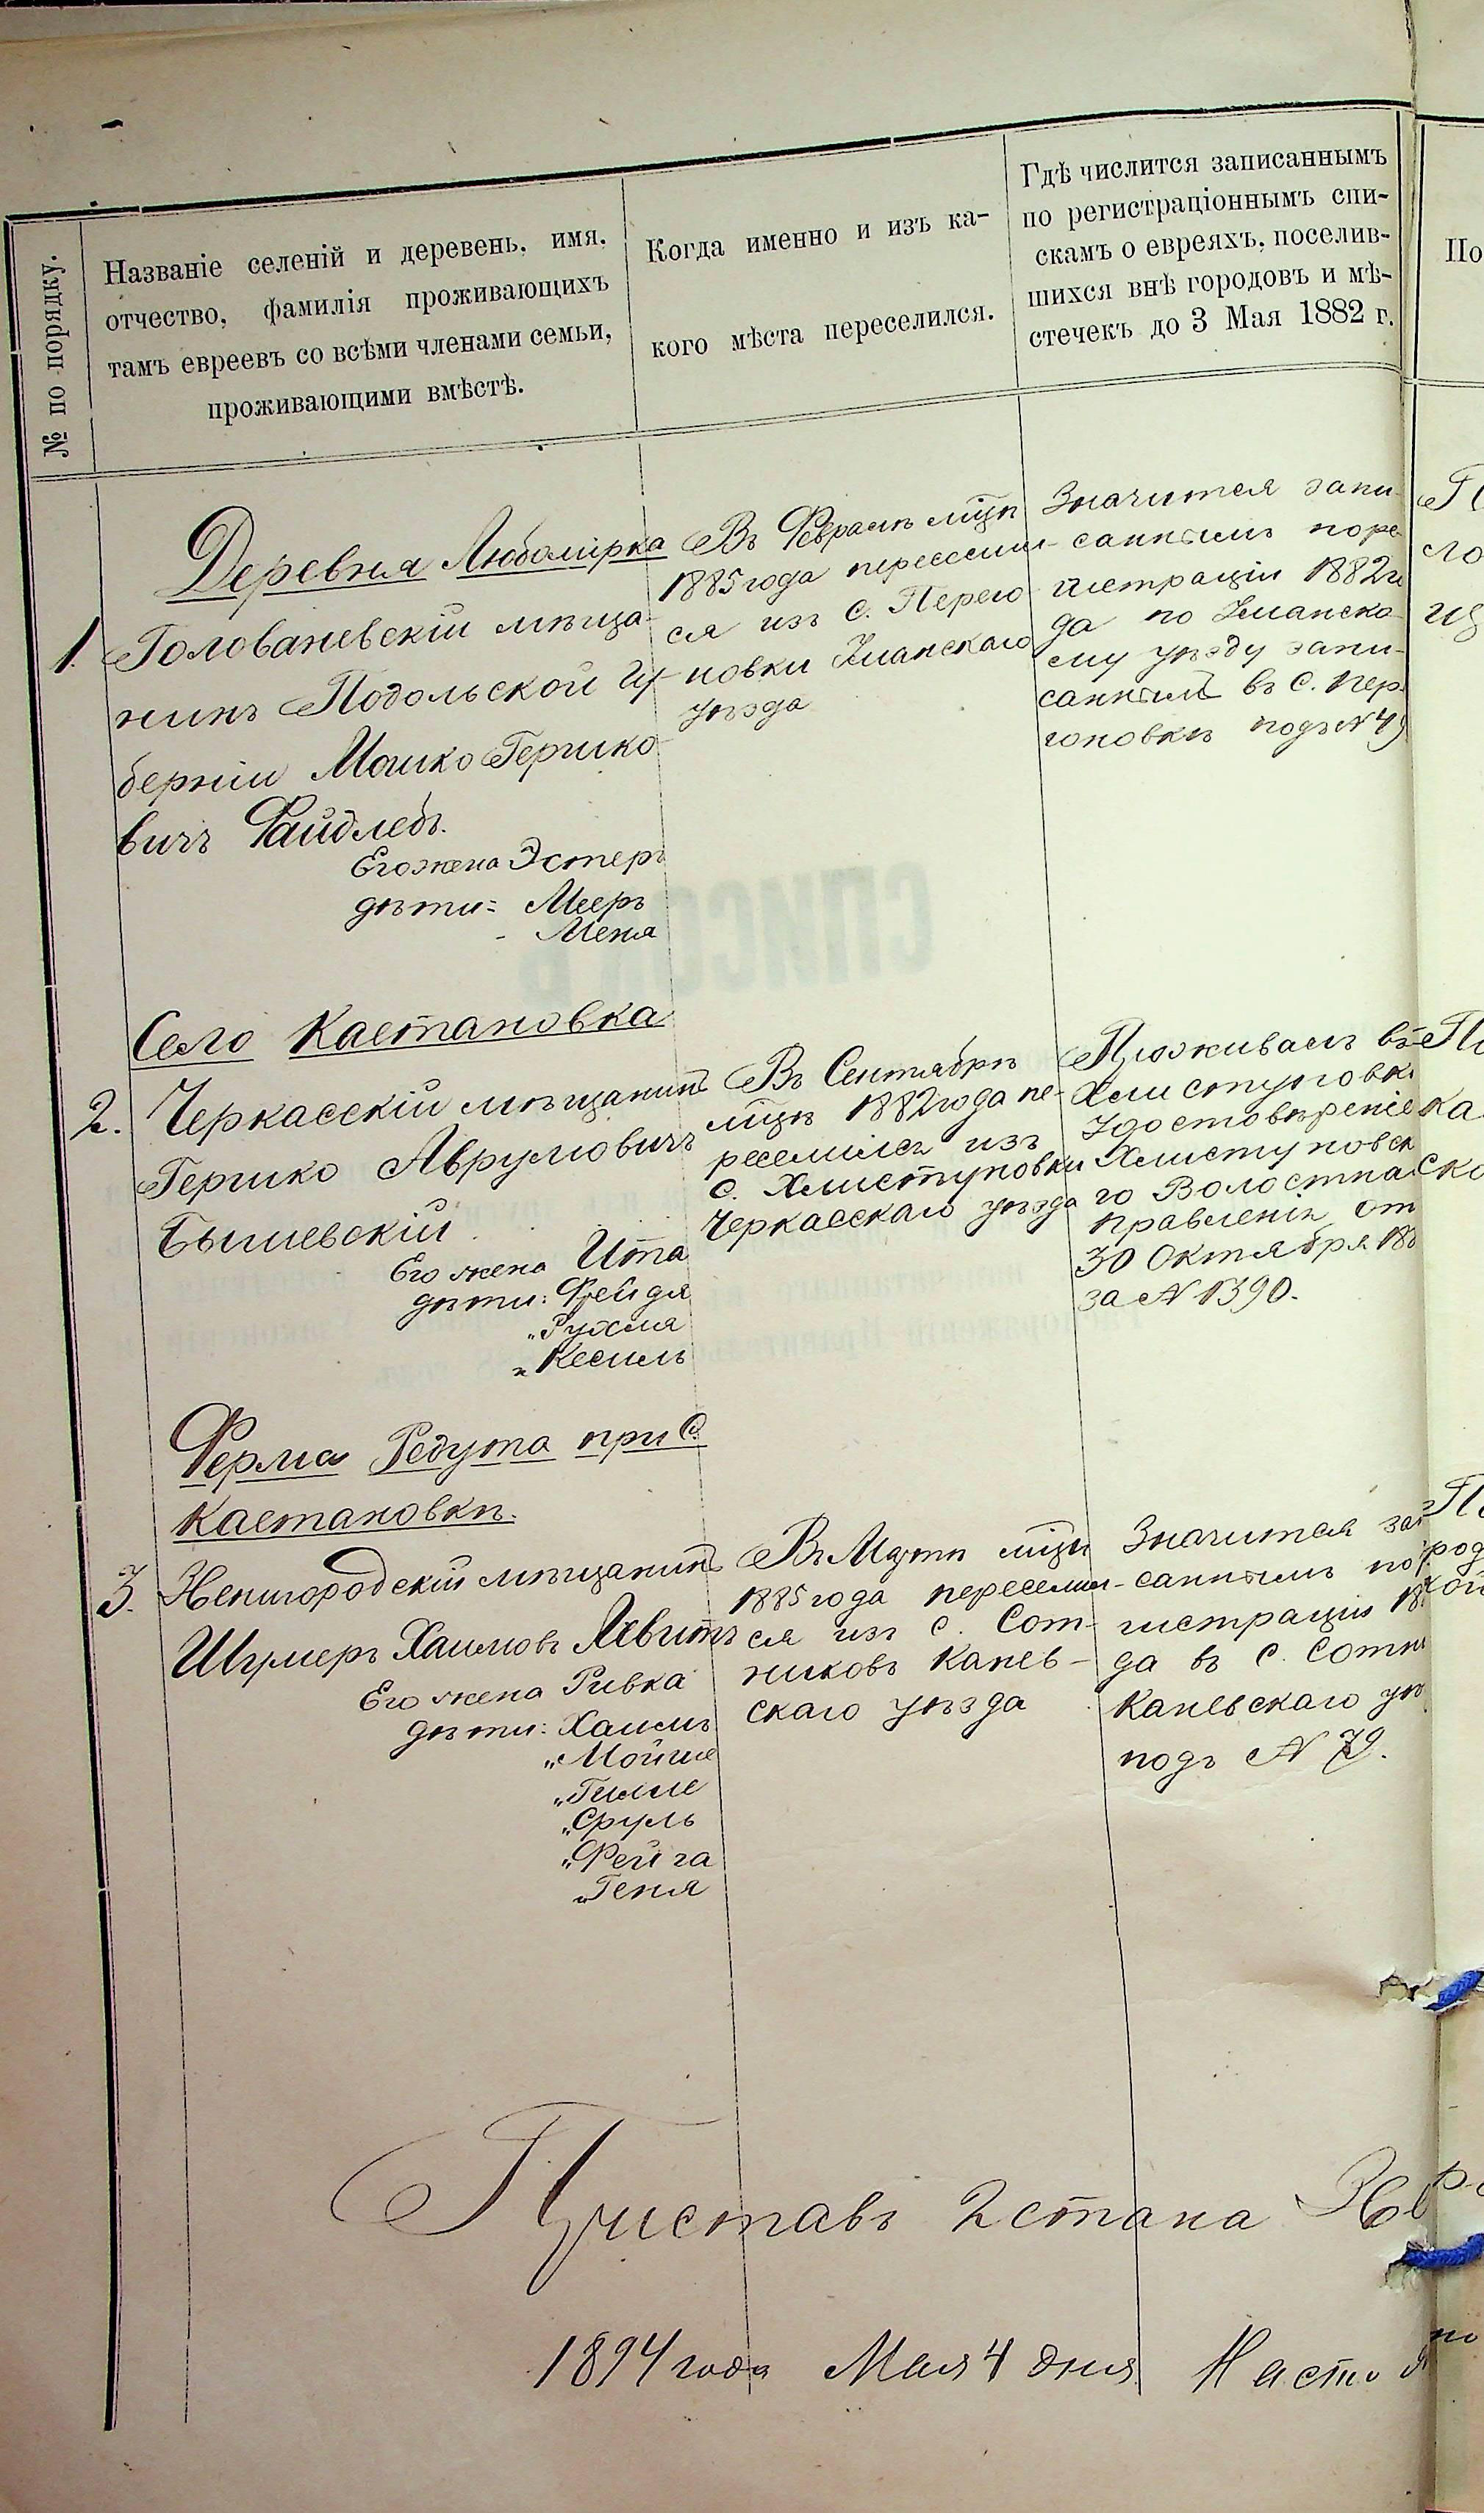 № по порядку.
Названіе селеній и деревень, имя,
отчество, фамилія проживающихъ
тамъ евреевъ со всѣми членами семьи,
проживающими вмѣстѣ.
Когда именно и изъ ка-
кого мѣста переселился.
Гдѣ числится записаннымъ
по регистраціоннымъ спи-
скамъ о евреяхъ, поселив-
шихся внѣ городовъ и мѣ-
стечекъ до 3 Мая 1882 г.
По
Деревня Любомірка
1. Голованевскій мѣща-
нинъ Подольской гу-
берніи Мошко Гершко-
вичъ Файдлебъ.
Его жена Эстеръ
дѣти: Мееръ
- Меня
Въ Февралѣ мѣцѣ
1885 года переселил-
ся изъ с. Перего
новки Уманскаго
уѣзда
Значится запи-
саннымъ по ре-
гистраціи 1882 го
да по Уманско-
му уѣзду запи-
санный въ с. Пер
гоновкѣ подъ №
Село Кастановка
2. Черкасскій мѣщанинъ
Гершко Аврумовичъ
Бышевскій
Его жена Ита
дѣти: Фрейдя
" Рухля
" Кесиль
Въ Сентябрѣ
мѣцѣ 1882 года пе-
реселился изъ
с. Хлистуновки
Черкасскаго уѣзда
Проживалъ въ
Хлистуновкѣ
Удостовѣреніе
Хлистуновск
го Волостна
правленія от
30 Октября 18
за № 1390.
Ферма Редута при С.
Кастановкѣ.
3. Звенигородскій мѣщанинъ
Шулимъ Хаимовъ Левитъ
Его жена Ривка
дѣти: Хаимъ
" Мойше
" Гилле
" Сруль
" Фейга
" Геня
Въ Мартѣ мѣцѣ
1885 года переселил-
ся изъ с. Сот-
никовъ Канев-
скаго уѣзда
Значится за
саннымъ по р
гистраціи 18
да въ с. Сотни
Каневскаго уѣ
подъ № 79.
Приставъ 2 стана Зв
1894 года Мая 4 дня Насто